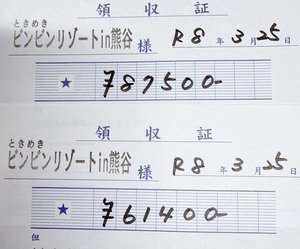 領収証
ときめき
ビンビンリゾートin熊谷 様 R8年3月25日
★ ¥87500-
領収証
ときめき
ビンビンリゾートin熊谷 様 R8年3月25日
★ ¥61400-
但